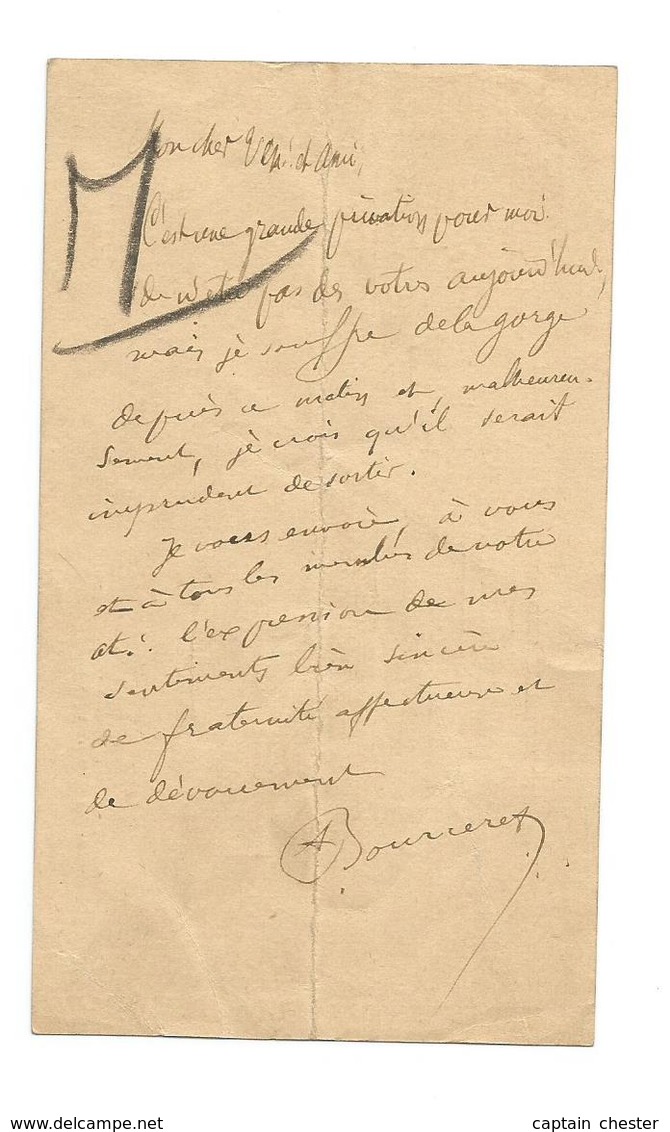 Mon cher Vén∴ et Ami,
C'est une grande privation pour moi
de n'etre pas des votres aujourd'hui,
mais je souffre de la gorge
depuis ce matin et, malheureu-
sement, je crois qu'il serait
imprudent de sortir.
Je vous envoie, à vous
et à tous les membres de notre
at∴ l'expression de mes
sentiments bien sincère
de fraternité affectueuse et
de dévouement
A Bourceret
delcampe.net
captain chester